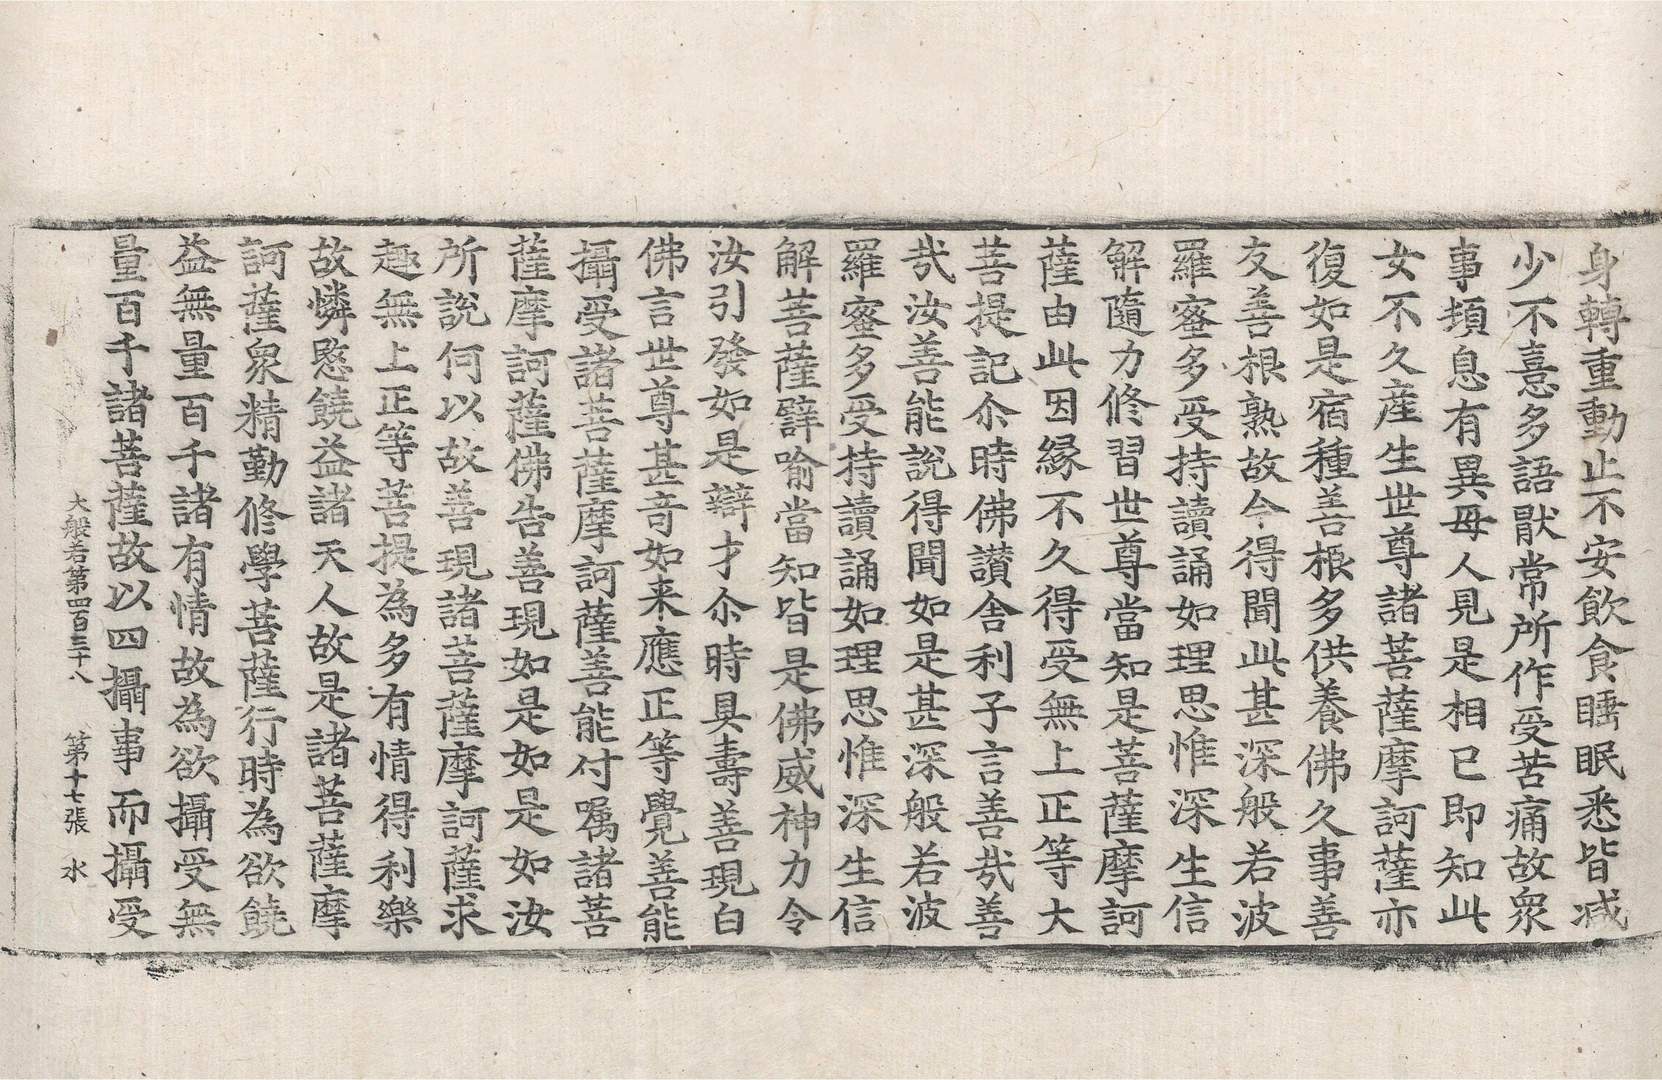 身轉重動止不安飲食睡眠悉皆減
少不憙多語猒常所作受苦痛故衆
事頓息有異母人見是相已即知此
女不久産生世尊諸菩薩摩訶薩亦
復如是宿種善根多供養佛久事善
友善根熟故今得聞此甚深般若波
羅蜜多受持讀誦如理思惟深生信
解隨力修習世尊當知是菩薩摩訶
薩由此因縁不久得受無上正等大
菩提記尒時佛讃舍利子言善㢤善
㢤汝善能說得聞如是甚深般若波
羅蜜多受持讀誦如理思惟深生信
解菩薩譬喻當知皆是佛威神力令
汝引發如是辯才尒時具壽善現白
佛言世尊甚奇如来應正等覺善能
攝受諸菩薩摩訶薩善能付嘱諸菩
薩摩訶薩佛告善現如是如是如汝
所說何以故善現諸菩薩摩訶薩求
趣無上正等菩提為多有情得利樂
故憐愍饒益諸天人故是諸菩薩摩
訶薩衆精勤修學菩薩行時為欲饒
益無量百千諸有情故為欲攝受無
量百千諸菩薩故以四攝事而攝受
大般若第四百三十八　第十七張　水